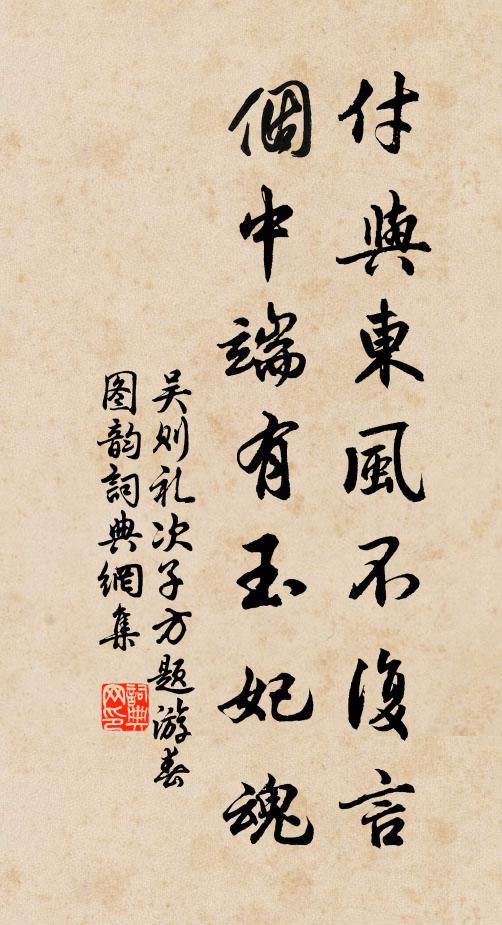 付與東風不復言
個中端有玉妃魂
吴则礼次子方题游春
图韵詞典網集
詞典
网印